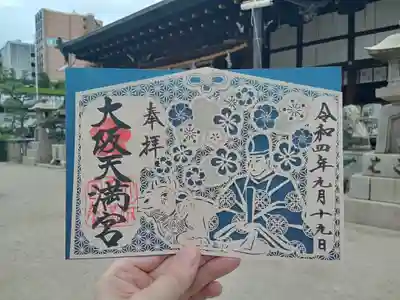 令和四年九月十九日
奉拝
大阪天満宮